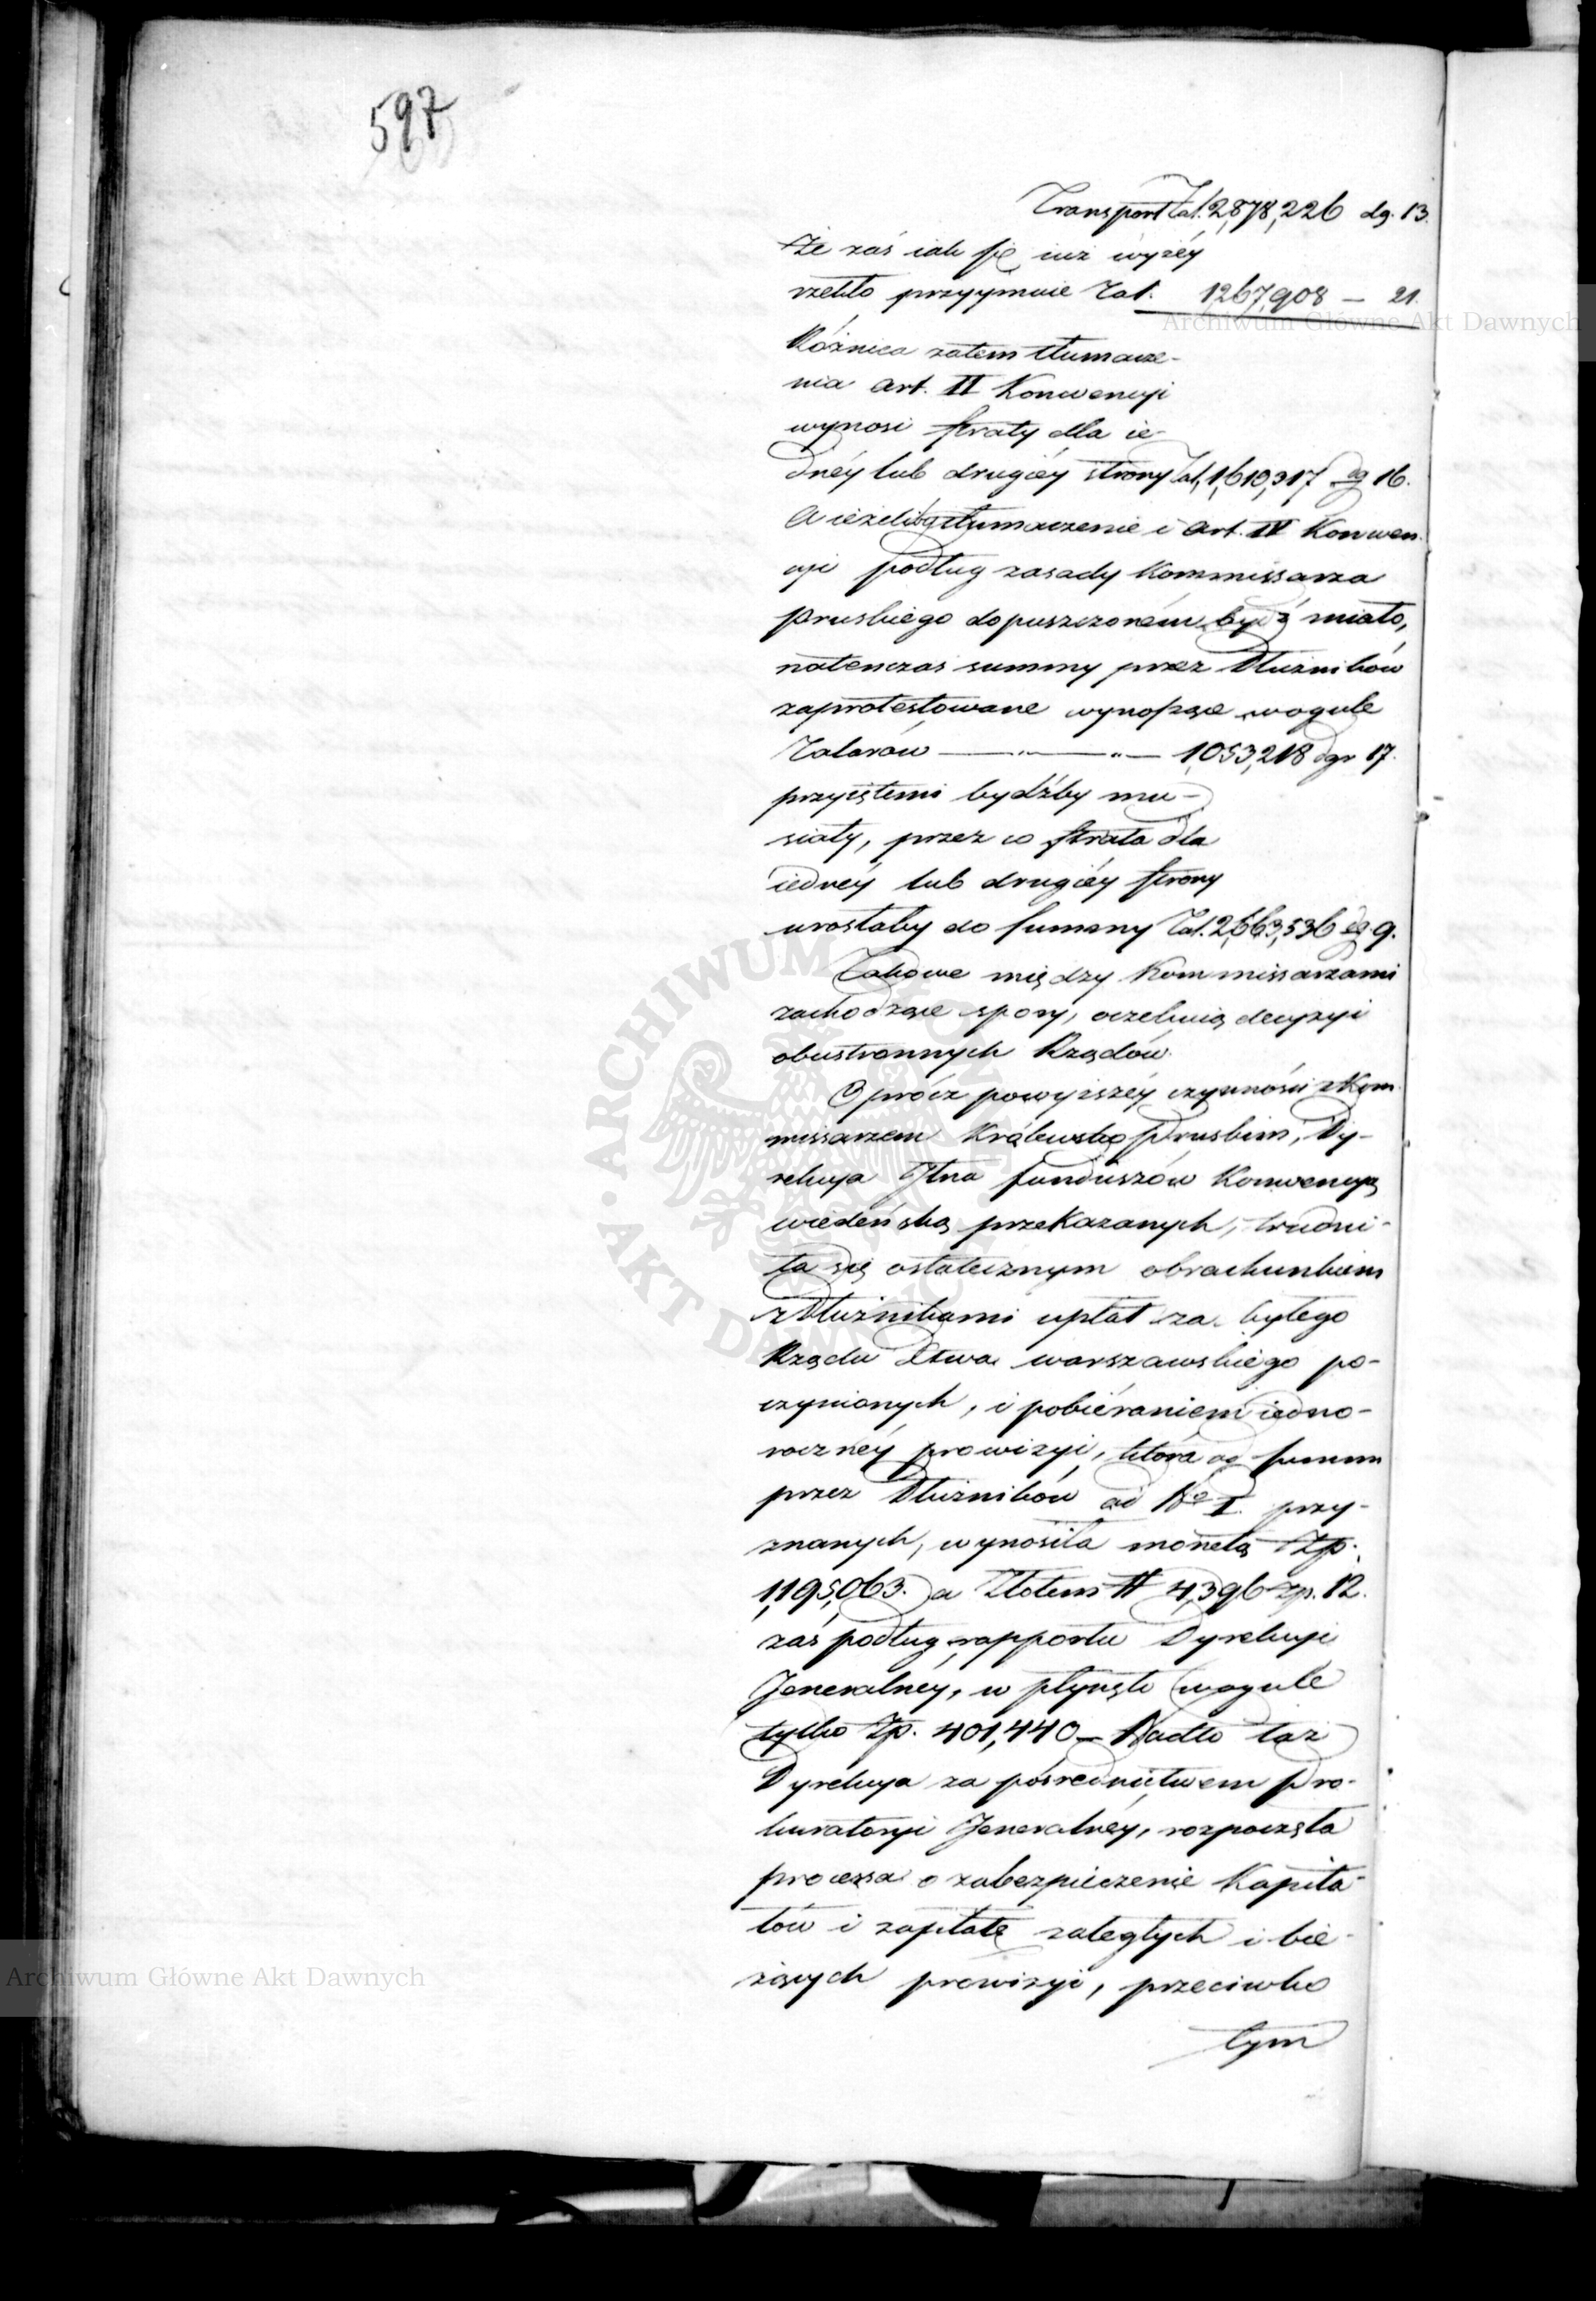 597
Transport Tal. 2,878,226 dg. 13.
Że zaś iak się iuż wyżéy
rzekło przyymuie Tal. 1,267,908 — 21.
Różnica zatem tłumacze-
nia art. II Konwencyi
wynosi straty dla ie-
dnéy lub drugiéy strony Tal. 1,610,317 dg 16.
A ieżeliby tłumaczenie i art. IV Konwen-
cyi podług zasady Kommissarza
Pruskiego dopuszczoném być miało,
natenczas summy przez Dłużników
zaprotestowane wynoszące wogule
Talarów — " — " — 1,053,218 dgr 17.
przyiętemi bydźby mu-
siały, przez co strata dla
iednéy lub drugiéy strony
urosłaby do summy Tal. 2,663,536 dg 9.
Takowe między Kommissarzami
zachodzące spory, oczekuią decyzyi
obustronnych Rządów.
Oprócz powyższéy czynności z Kom-
missarzem Królewsko Pruskim, Dy-
rekcya Jlna funduszów Konwencyą
wiedeńską przekazanych, trudni-
ła się ostatecznym obrachunkiem
z Dłużnikami upłat za byłego
Rządu Xtwa warszawskiego po-
czynionych, i pobiéraniem iedno-
rocznéy prowizyi, która od summ
przez Dłużników ad No I. przy-
znanych, wynosiła monetą Zp.
1,195,063. a Złotem # 4,396 zp. 12.
zaś podług rapportu Dyrekcyi
Jeneralnéy, w płynęło wogule
tylko Zp. 401,440 — Nadto taż
Dyrekcya za pośrednictwem Pro-
kuratoryi Jeneralnéy, rozpoczęła
processa o zabezpieczenie Kapita-
łów i zapłatę zaległych i bie-
żących prowizyi, przeciwko
tym
Archiwum Główne Akt Dawnych
Archiwum Główne Akt Dawnych
ARCHIWUM GŁÓWNE AKT DAWNYCH